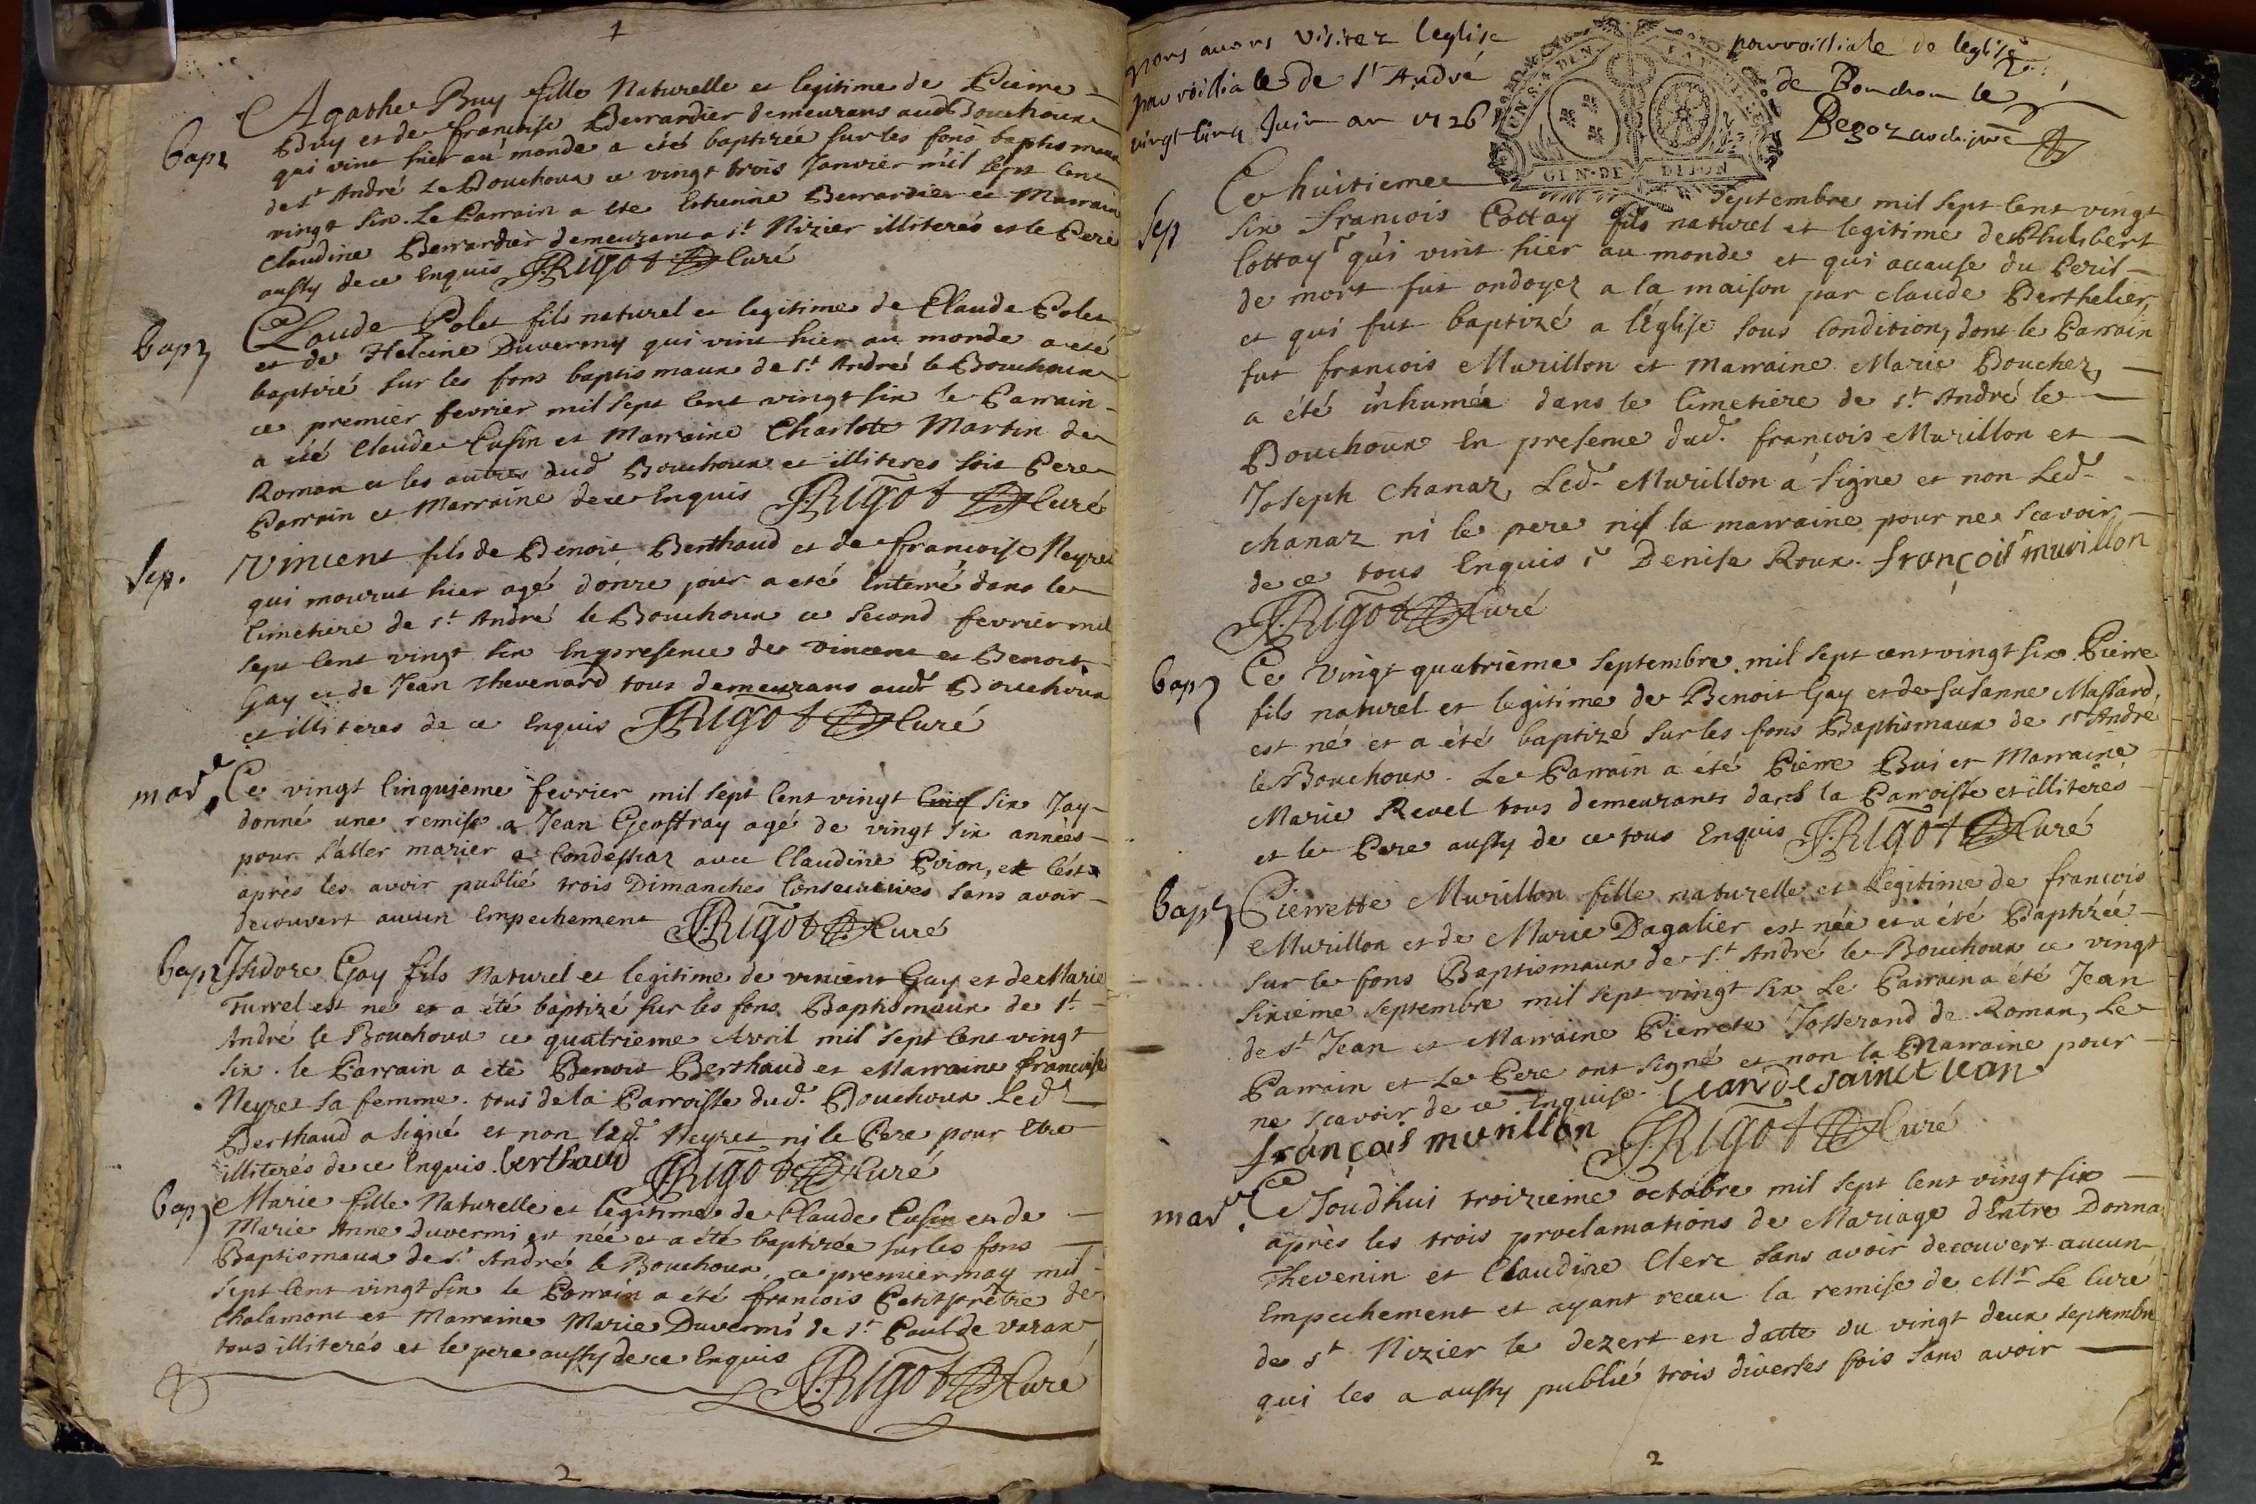 1
Agathe Buy fille Naturelle et legitime de Pierre
bapt
Buy et de francoise Berrardier demeurans aud Bouchoux
qui vint hier au monde a été baptizée sur les fons baptismaux
de st André le Bouchoux ce vingt trois Janvier mil sept cent
vingt six. Le Parrain a ete Estienne Berrardier et Marraine
claudine Berrardier demeurant a st Nizier illiterés et le Pere
aussy de ce Enquis JRigot Curé
bapt
Claude Polet fils naturel et legitime de Claude Polet
et de Heleine Duvermy qui vint hier au monde a eté
baptizé sur les fons baptismaux de st André le Bouchoux
ce premier fevrier mil sept cent vingt six le Parrain
a été Claude Cusin et Marraine Charlote Martin de
Roman et les autres dud Bouchoux et illiteres soit Pere
Parrain et Marraine de ce Enquis JRigot Curé
Sep.
Vincent fils de Benoit Berthaud et de francoise Neyret
qui mourut hier agé d'onze jour a eté Enterré dans le
Cimetiere de st André le Bouchoux ce second fevrier mil
sept cent vingt six En presence de Vincent et Benoit
Gay et de Jean Thevenard tous demeurans audt Bouchoux
et illiteres de ce Enquis JRigot Curé
mar.
Ce vingt cinquieme fevrier mil sept cent vingt cinq six Jay
donné une remise a Jean Geoffray agé de vingt six années
pour s'aller marier a Condessiaz avec Claudine Piron, et c'est
après les avoir publié trois Dimanches Consecutives sans avoir
decouvert aucun Empechement JRigot Curé
bapt
Isidore Gay fils Naturel et legitime de vincent Gay et de Marie
Turrel est né et a été baptizé sur les fons Baptismaux de st
André le Bouchoux ce quatrieme Avril mil sept cent vingt
six. le Parrain a été Benoit Berthaud et Marraine francoise
Neyret sa femme. tous de la Parroisse dud. Bouchoux Led
Berthaud a signé et non lad. Neyret ni le Pere pour Etre
illiterés de ce Enquis. berthaud JRigot Curé
bapt
Marie fille Naturelle et legitime de Claude Cusin et de
Marie Anne Duvermi est née et a été baptizée sur les fons
Baptismaux de st André le Bouchoux, ce premier may mil
sept cent vingt six le Parrain a été francois Petitprêtre de
Chalamont et Marraine Marie Duvermi de st Paul de varax
tous illiterés et le pere aussy de ce Enquis
JRigot Curé
2
nous avons visitez leglise
parroissiale de st André
vingt cinq Juin an 1726
parroissiale de leglise
de Bouchou le
GEN. DE DIJON
Ce huitieme septembre mil sept cent vingt
Sep
six francois Cottay fils naturel et legitime de Philibert
Cottay qui vint hier au monde et qui accause du Peril
de mort fut ondoyez a la maison par claude Berthelier,
et qui fut baptizé a l'église sous Condition, dont le Parrain
fut francois Murillon et marraine Marie Bouchez,
a été inhumée dans le Cimetiere de st André le
Bouchoux En presence dud. francois Murillon et
Joseph Chanaz, Led. Murillon a signé et non Led.
chanaz ni le pere ni la marraine pour ne scavoir
de ce tous Enquis, Denise Roux. françois murillon
JRigot Curé
bapt
Ce vingt quatrième septembre mil sept cent vingt six Pierre
fils naturel et legitime de Benoit Gay et de Susanne Massard,
est né et a été baptizé sur les fons Baptismaux de st André
le Bouchoux. Le Parrain a été Pierre Bui et Marraine
Marie Revel tous demeurants dans la Parroisse et illiterés
et le Pere aussy de ce tous Enquis JRigot Curé
bapt
Pierrette Murillon fille naturelle et Legitime de francois
Murillon et de Marie Dagalier est née et a été Baptizée
sur le fons Baptismaux de st André le Bouchoux ce vingt
sixieme septembre mil sept vingt six Le Parrain a été Jean
de st Jean et Marraine Pierrete Josserand de Roman, Le
Parrain et Le Pere ont signé et non la Marraine pour
ne scavoir de ce Enquise. Jean de sainct Jean
françois murillon JRigot Curé
mar.
Ce Joudhui troizieme octobre mil sept cent vingt six
après les trois proclamations de Mariage d'Entre Donna
Thevenin et Claudine Clerc sans avoir decouvert aucun
Empechement et ayant receu la remise de Mr Le Curé
de st Nizier le dezert en datte du vingt deux septembre
qui les a aussy publié trois diverses fois sans avoir
2